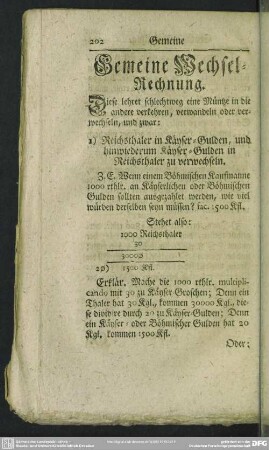 202 Gemeine
Gemeine Wechsel-
Rechnung.
Diese lehret schlechtweg eine Müntze in die
andere verkehren, verwandeln oder ver-
wechseln, und zwar:
1) Reichsthaler in Käyser-Gulden, und
hinwiederum Käyser-Gulden in
Reichsthaler zu verwechseln.
Z.E. Wenn einem Böhmischen Kauffmanne
1000 rthlr. an Käyserlichen oder Böhmischen
Gulden sollten ausgezahlet werden, wie viel
würden derselben seyn müssen? fac. 1500 Kfl.
Stehet also:
1000 Reichsthaler
30
30000
20) 1500 Kfl.
Erklär. Mache die 1000 rthlr. multipli-
cando mit 30 zu Käyser-Groschen; Denn ein
Thaler hat 30 Kgl., kommen 30000 Kgl., die-
se dividire durch 20 zu Käyser-Gulden; Denn
ein Käyser- oder Böhmischer Gulden hat 20
Kgl, kommen 1500 Kfl.
Oder;